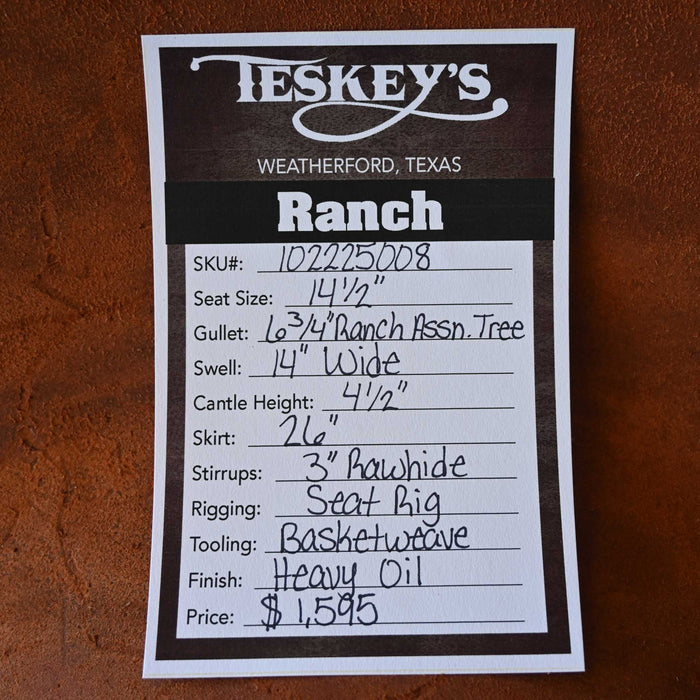 TESKEY'S
WEATHERFORD, TEXAS
Ranch
SKU#: 102225008
Seat Size: 14 1/2"
Gullet: 6 3/4" Ranch Assn. Tree
Swell: 14" Wide
Cantle Height: 4 1/2"
Skirt: 26"
Stirrups: 3" Rawhide
Rigging: Seat Rig
Tooling: Basketweave
Finish: Heavy Oil
Price: $1,595